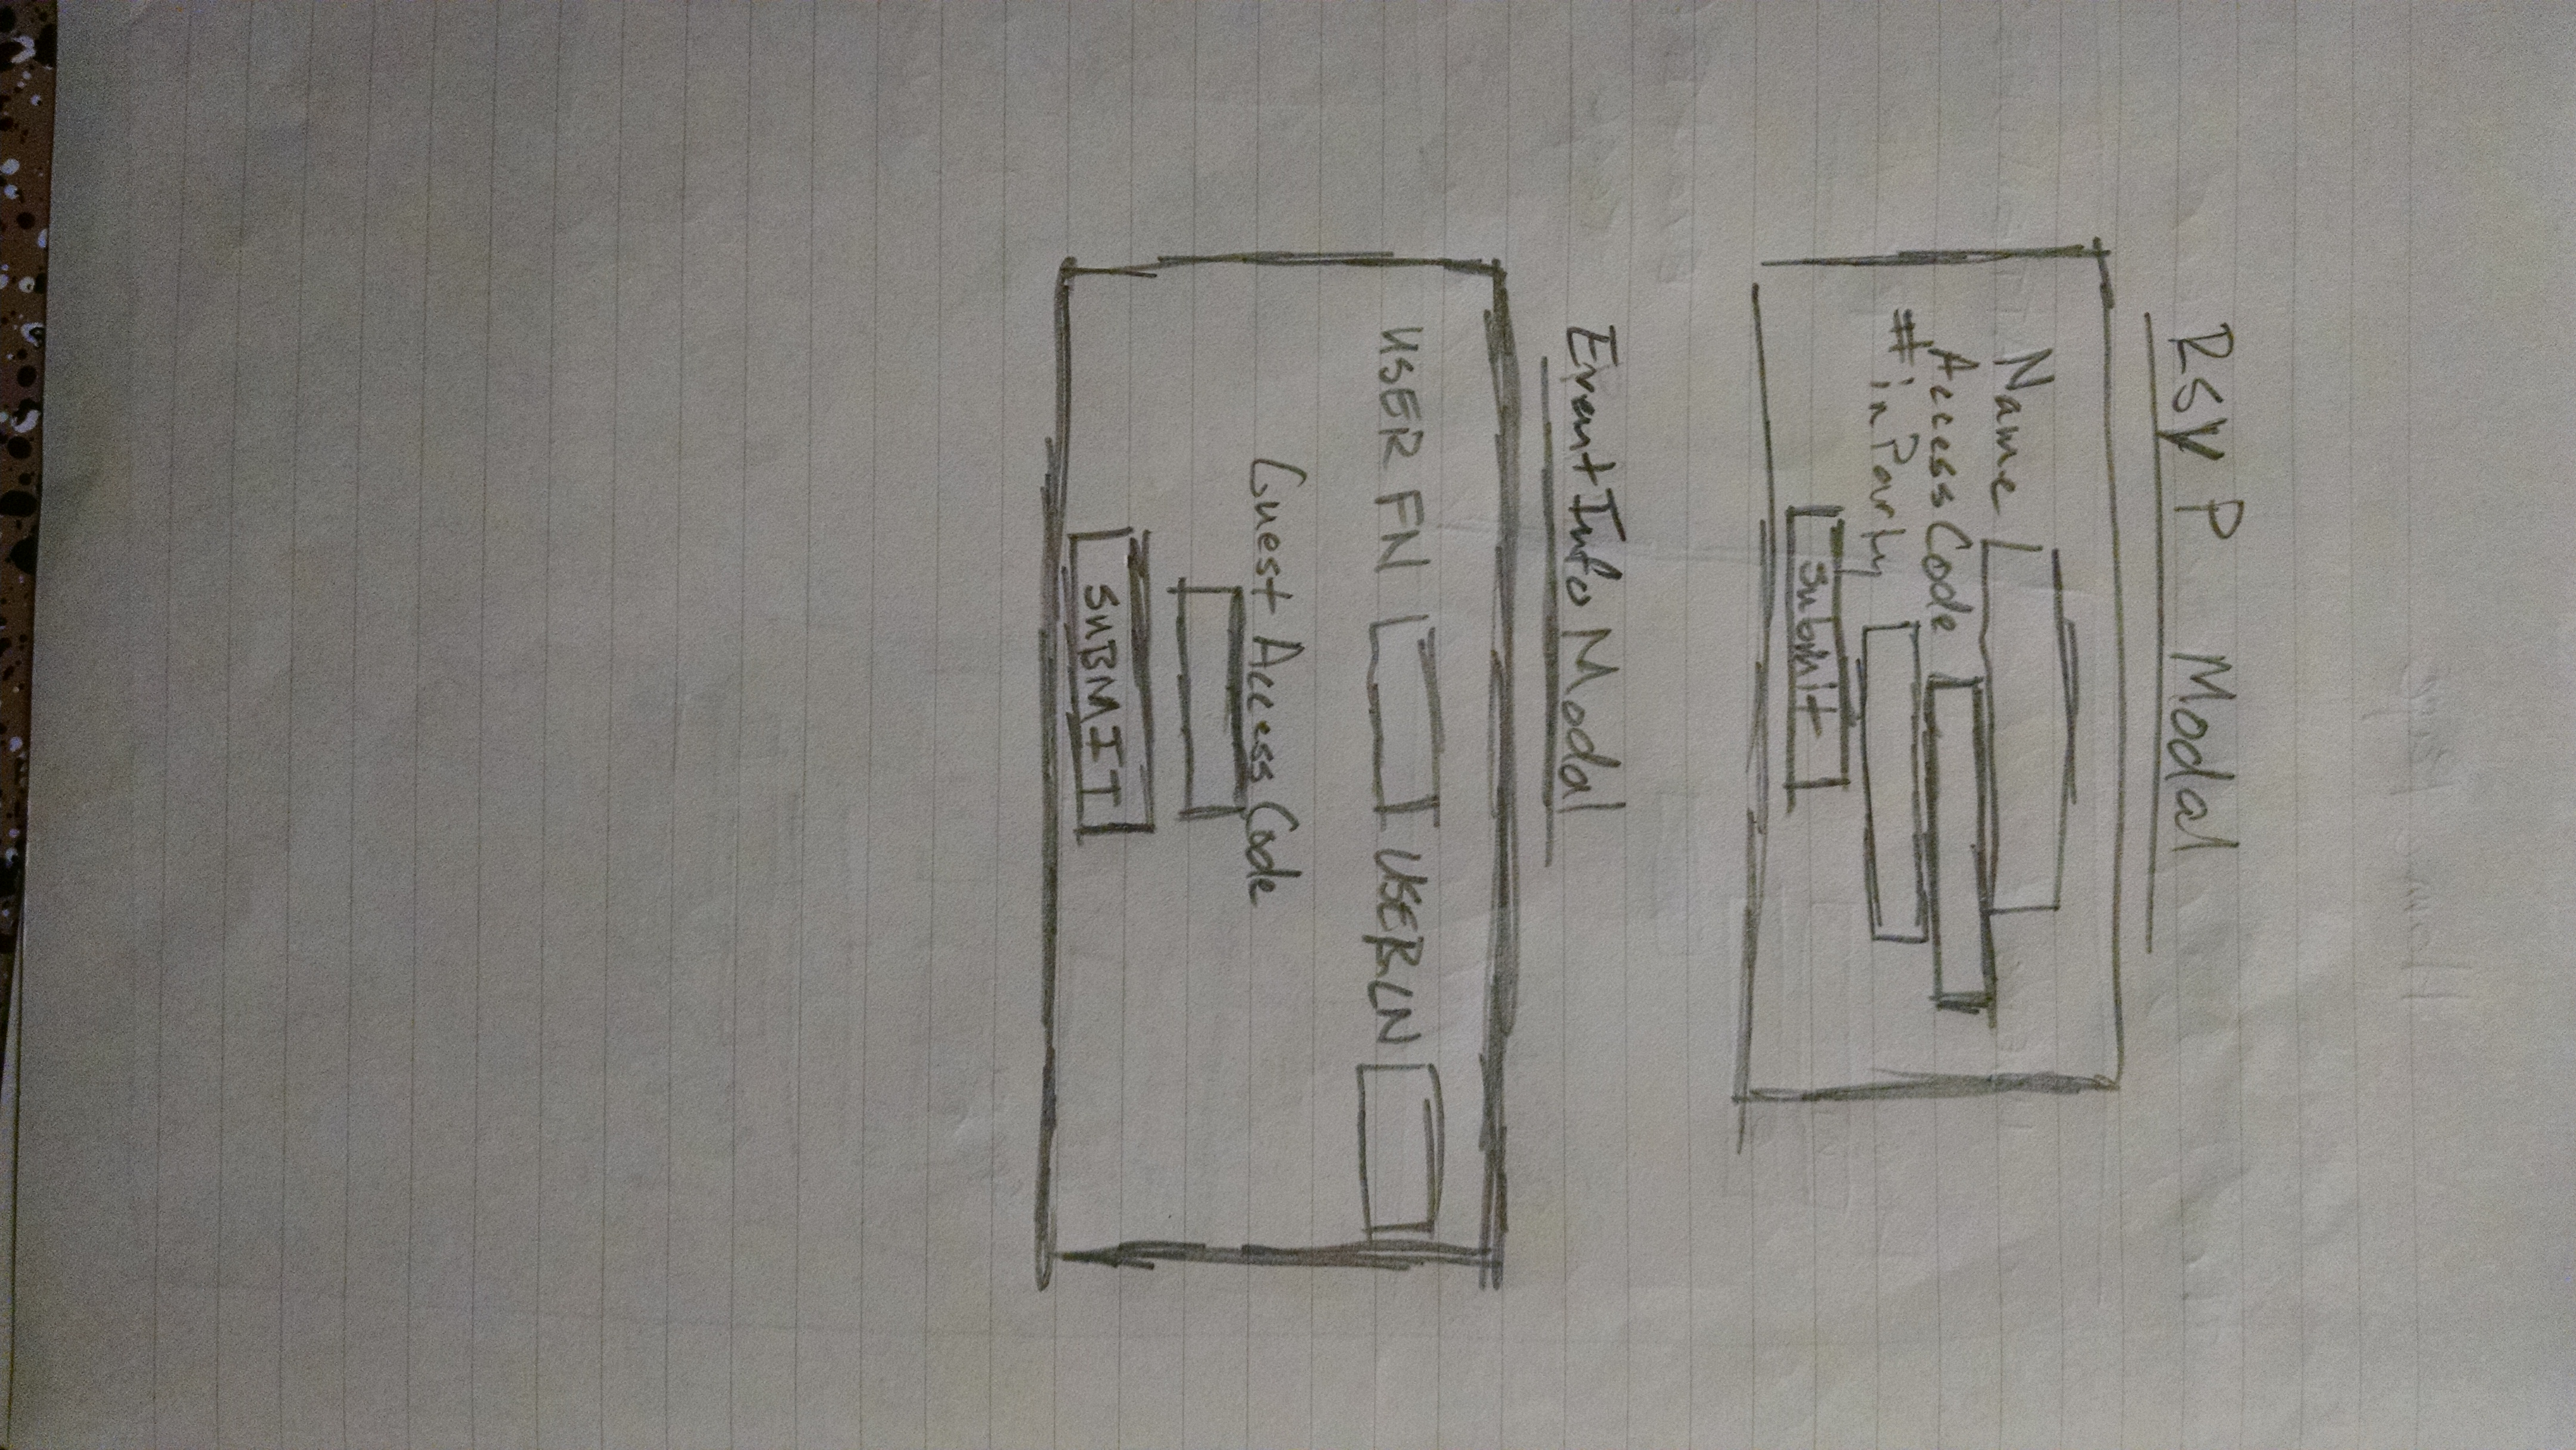 RSVP Modal
Name
Access Code
# in Party
Submit
Event Info Modal
USER FN USER LN
Guest Access Code
SUBMIT